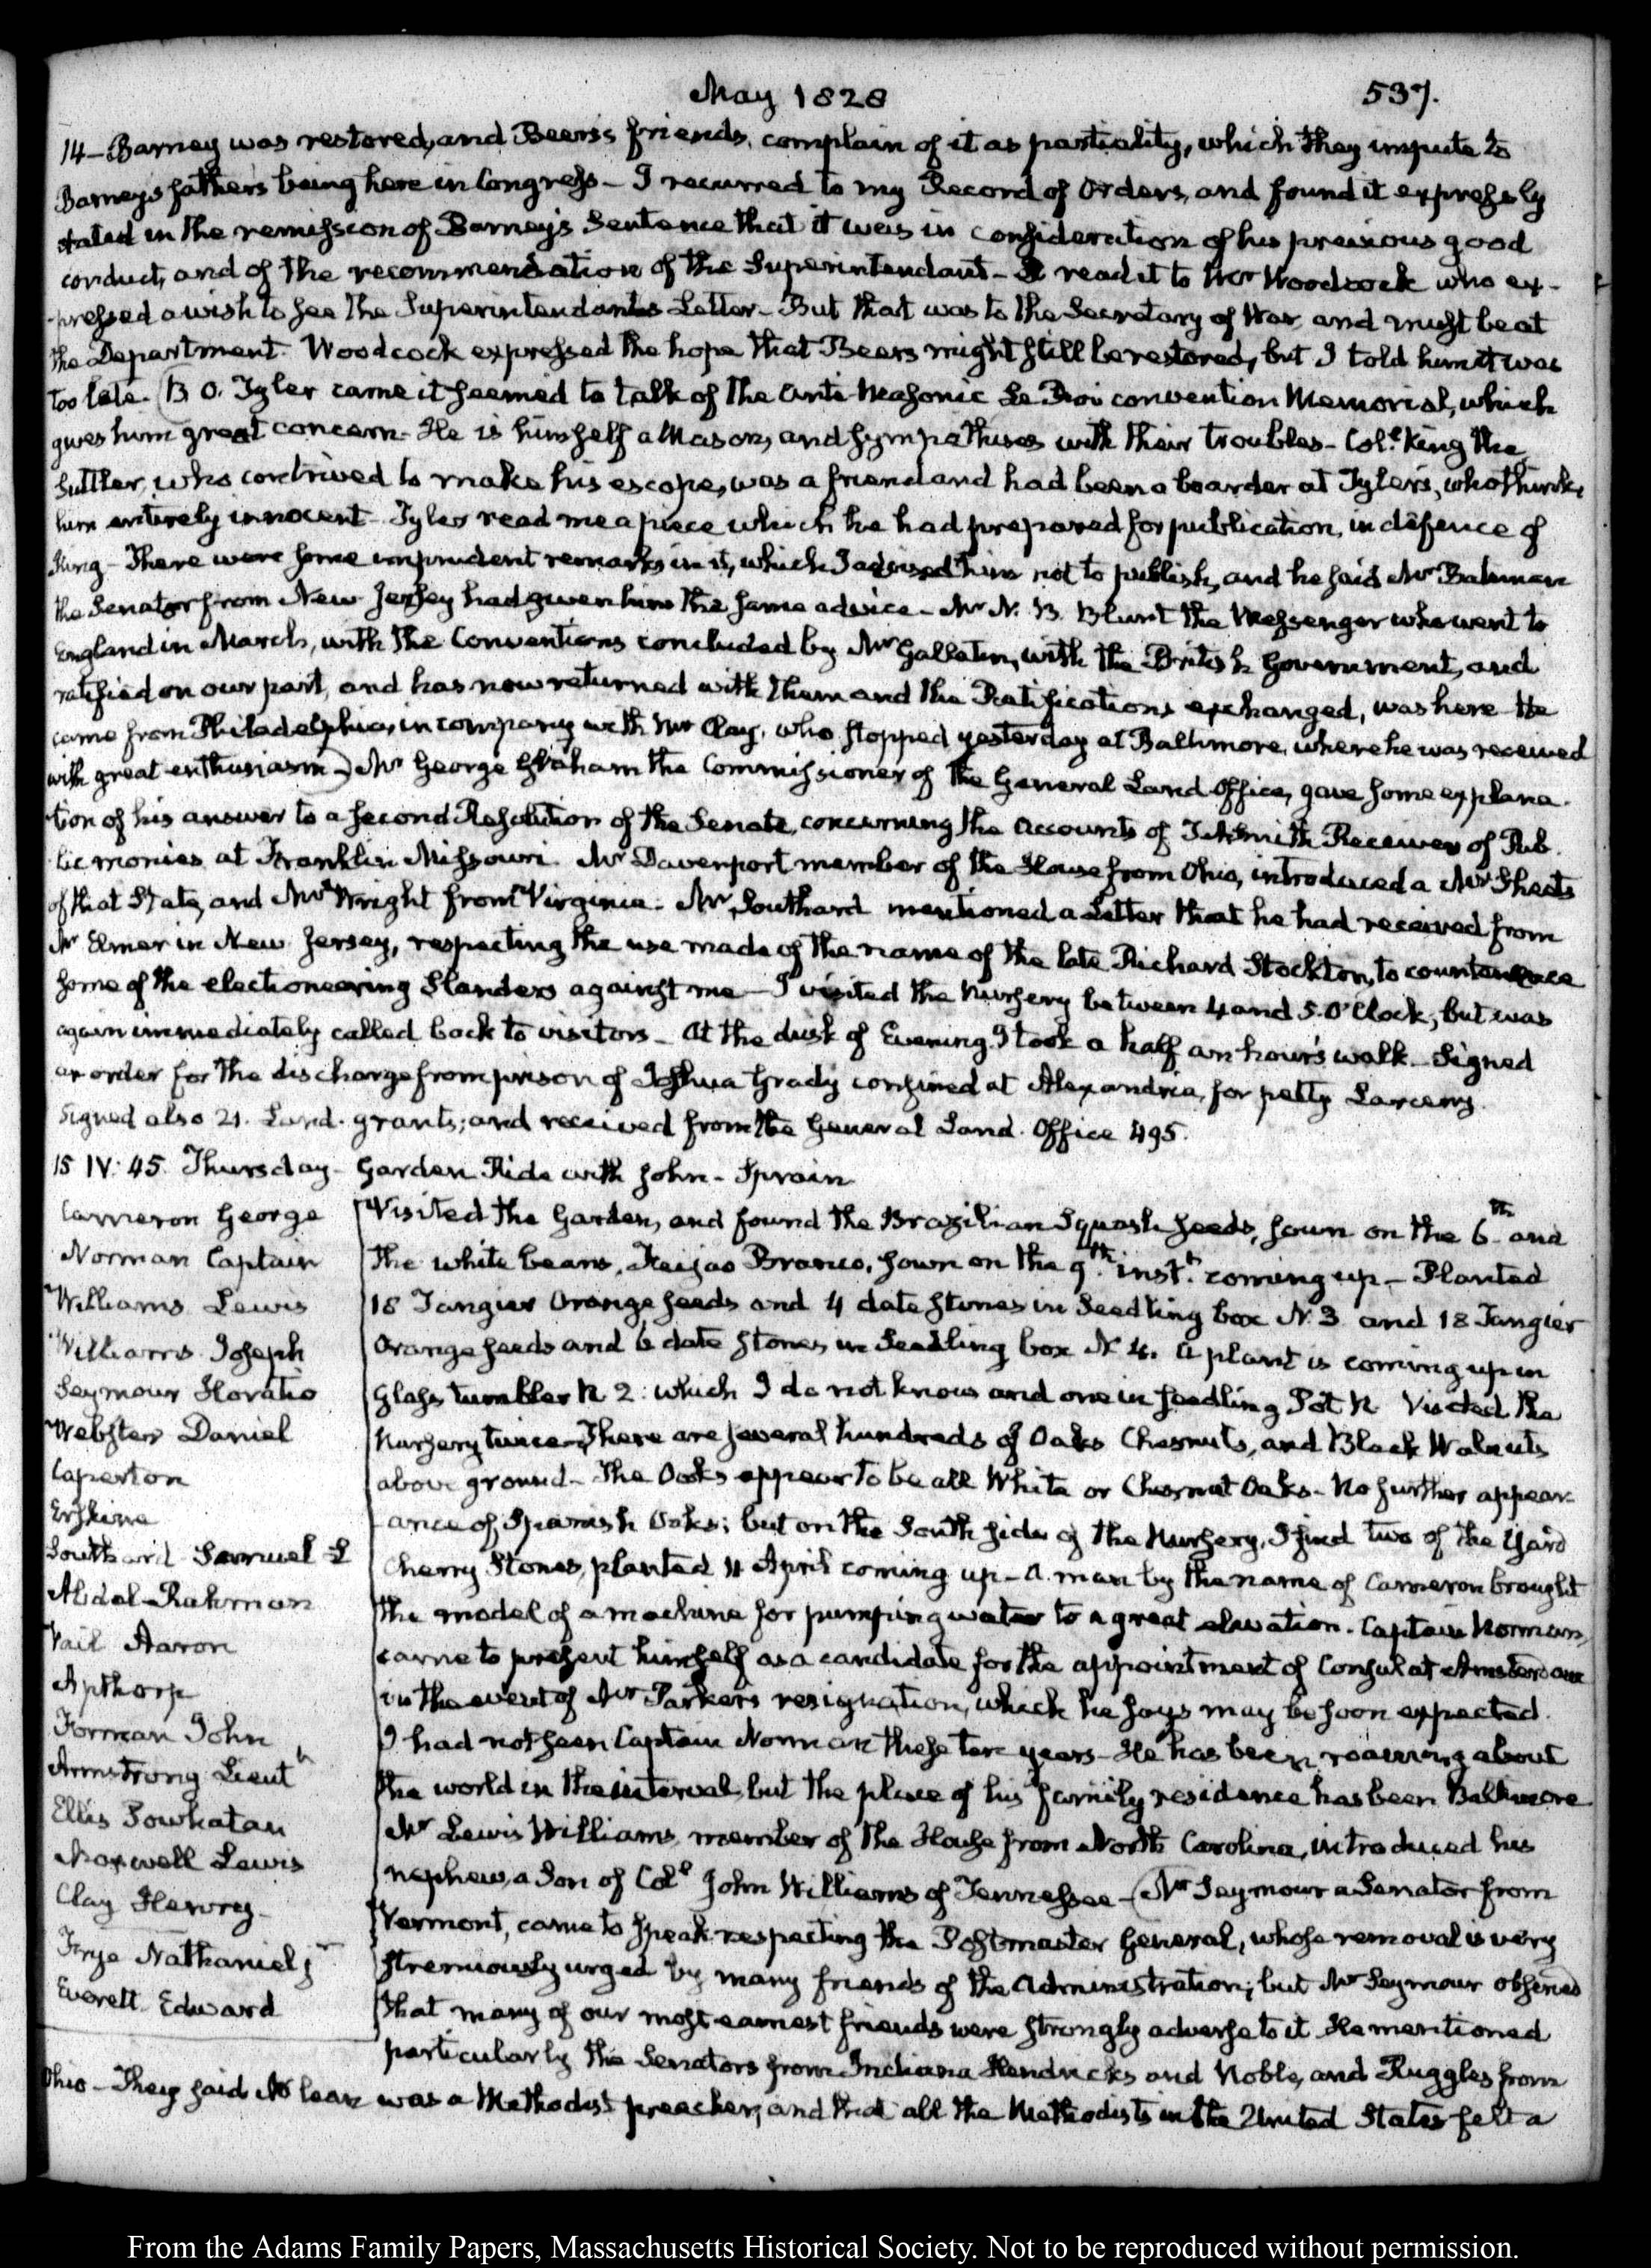 May 1828
537.
14 – Barney was restored, and Beers's friends, complain of it as partiality, which they impute to
Barney's father's being here in Congress – I recurred to my Record of Orders, and found it expressly
stated in the remission of Barney's Sentence that it was in consideration of his previous good
conduct, and of the recommendation of the Superintendant – I read it to Mr Woodcock who ex-
-pressed a wish to see the Superintendants Letter – But that was to the Secretary of War, and must be at
the Department. Woodcock expressed the hope that Beers might still be restored, but I told him it was
too late. (B. O. Tyler came it seemed to talk of the Anti-Masonic Le Roi convention Memorial, which
gives him great concern. He is himself a Mason, and sympathises with their troubles – Coll. King the
Suttler, who contrived to make his escape, was a friend and had been a boarder at Tyler's, who thinks
him entirely innocent – Tyler read me a piece which he had prepared for publication, in defence of
King – There were some imprudent remarks in it, which I advised him not to publish, and he said Mr Bateman
the Senator from New Jersey had given him the same advice – Mr N. B. Blunt the Messenger who went to
England in March, with the Conventions concluded by Mr Gallatin, with the British Government, and
ratified on our part, and has now returned with them and the Ratifications exchanged, was here – He
came from Philadelphia, in company with Mr Clay, who stopped yesterday at Baltimore, where he was received
with great enthusiasm –) Mr George Graham the Commissioner of the General Land Office, gave some explana-
tion of his answer to a second Resolution of the Senate, concerning the Accounts of Smith Receiver of Pub-
lic monies at Franklin Missouri. Mr Davenport member of the House from Ohio, introduced a Mr Sheets
of that State, and Mr Wright from Virginia. Mr Southard mentioned a Letter that he had received from
Mr Elmer in New Jersey, respecting the use made of the name of the late Richard Stockton, to countenance
some of the electioneering Slanders against me – I visited the Nursery between 4 and 5. O'Clock, but was
again immediately called back to visitors – At the dusk of Evening I took a half an hour's walk – Signed
an order for the discharge from prison of Joshua Grady confined at Alexandria, for petty Larceny.
Signed also 21. Land-grants; and received from the General Land Office 495.
15 IV: 45. Thursday – Garden Ride with John – Sprain
Cameron George
Norman Captain
Williams Lewis
Williams Joseph
Seymour Horatio
Webster Daniel
Caperton
Erskine
Southard Samuel L
Abdal-Rahman
Vail Aaron
Apthorp
Forman John
Armstrong Lieutt
Ellis Powhatan
Maxwell Lewis
Clay Henry –
Frye Nathaniel jr
Everett Edward
Visited the Garden, and found the Brazilian Squash seeds, sown on the 6th and
the white beans, Feijao Branco, sown on the 9th instt. coming up – Planted
18 Tangier Orange seeds and 4 date stones in Seedling box N. 3 and 18 Tangier
Orange seeds and 6 date stones in Seedling box N 4. A plant is coming up in
Glass tumbler N 2: which I do not know and one in seedling Pot N Visited the
Nursery twice – There are several hundreds of Oaks Chesnuts, and Black Walnuts
above ground – The Oaks appear to be all White or Chesnut Oaks – No further appear-
-ance of Spanish Oaks; but on the South side of the Nursery, I find two of the Yard
Cherry Stones, planted 4 April coming up – A man by the name of Cameron brought
the model of a machine for pumping water to a great elevation. Captain Norman,
came to present himself as a candidate for the appointment of Consul at Amsterdam
in the event of Mr Parker's resignation, which he says may be soon expected.
I had not seen Captain Norman these ten years – He has been roaming about
the world in the interval, but the place of his family residence has been Baltimore.
Mr Lewis Williams, member of the House from North Carolina, introduced his
nephew, a Son of Coll John Williams of Tennessee – (Mr Seymour a Senator from
Vermont, came to speak respecting the Postmaster General, whose removal is very
strenuously urged by many friends of the Administration; but Mr Seymour observed
that many of our most earnest friends were strongly adverse to it. He mentioned
particularly the Senators from Indiana Hendricks and Noble, and Ruggles from
Ohio – They said McLean was a Methodist preacher, and that all the Methodists in the United States felt a
From the Adams Family Papers, Massachusetts Historical Society. Not to be reproduced without permission.